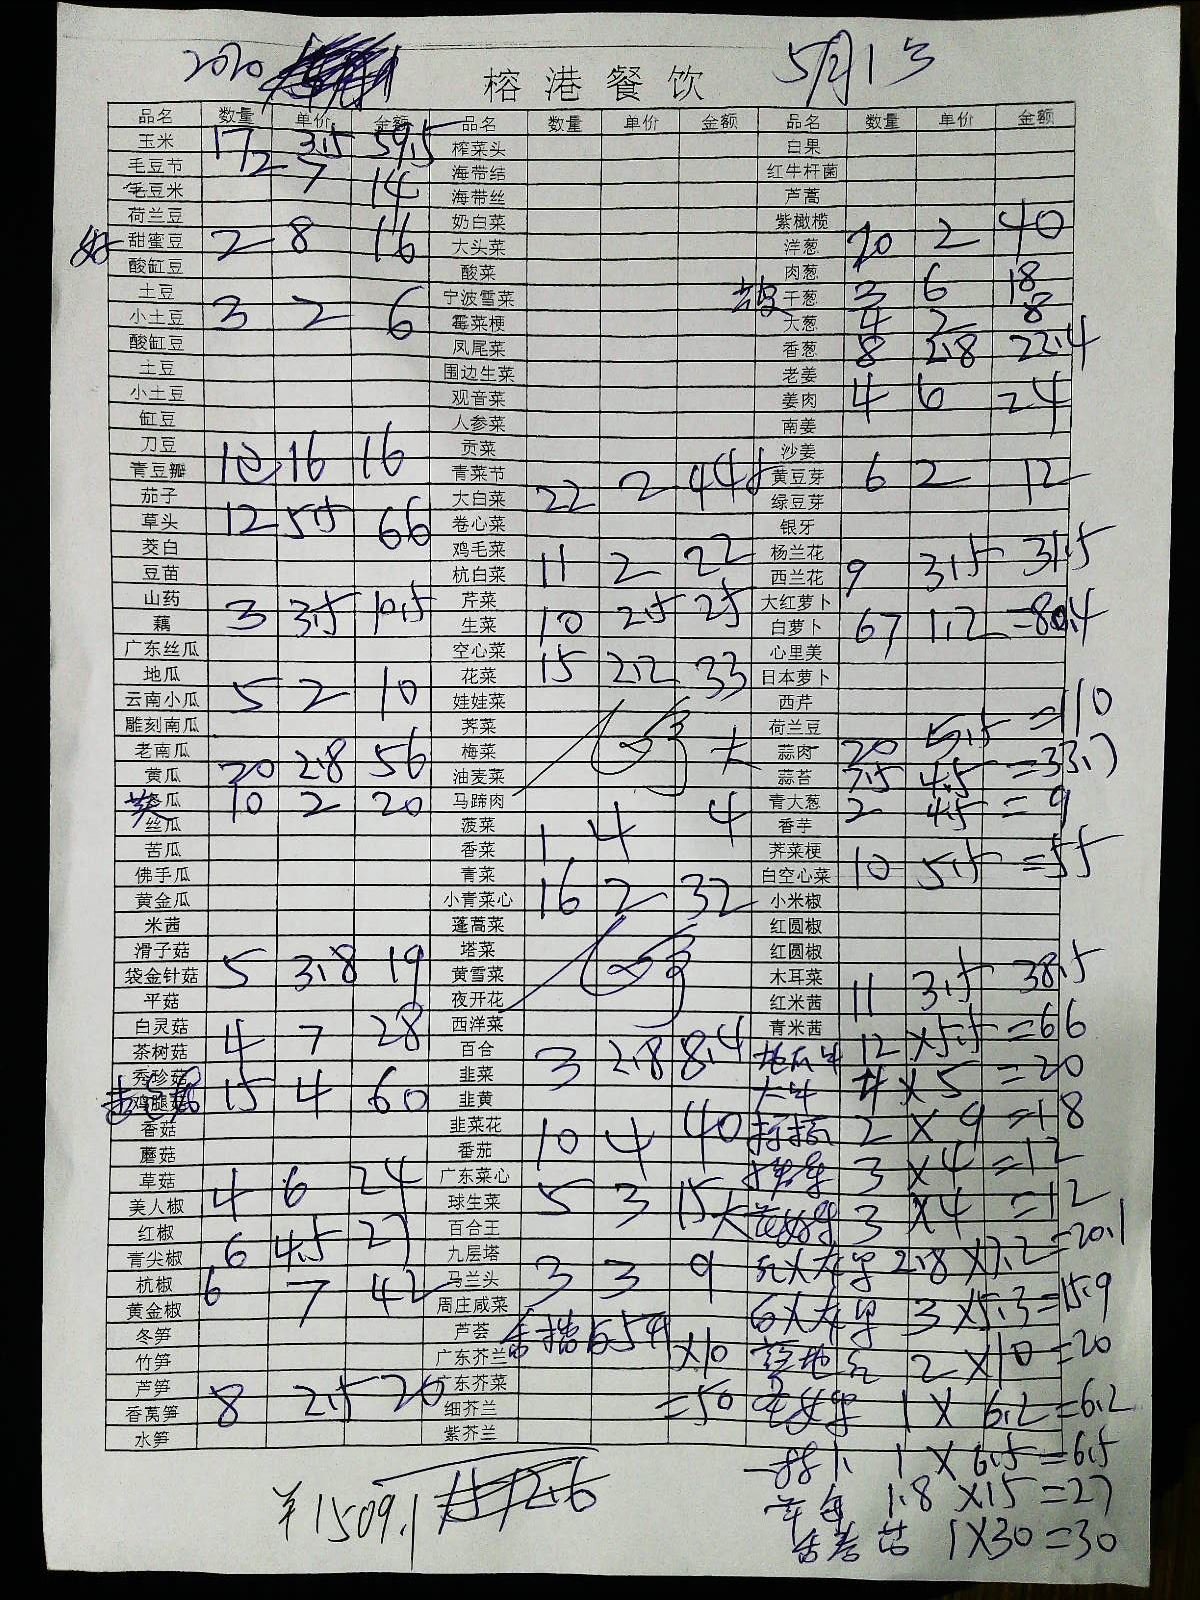 2020 榕港餐饮 5月1号
品名 数量 单价 金额 品名 数量 单价 金额 品名 数量 单价 金额
玉米 17 3.5 59.5 榨菜头 白果
毛豆节 2 7 14 海带结 红牛杆菌
毛豆米 海带丝 芦蒿
荷兰豆 奶白菜 紫橄榄
甜蜜豆 2 8 16 大头菜 洋葱 20 2 40
酸缸豆 酸菜 肉葱
土豆 宁波雪菜 干葱 3 6 18
小土豆 3 2 6 霉菜梗 大葱 4 2 8
酸缸豆 凤尾菜 香葱 8 2.8 22.4
土豆 围边生菜 老姜
小土豆 观音菜 姜肉 4 6 24
缸豆 人参菜 南姜
刀豆 贡菜 沙姜
青豆瓣 1包 16 16 青菜节 黄豆芽 6 2 12
茄子 大白菜 22 2 44 绿豆芽
草头 12 5.5 66 卷心菜 银牙
茭白 鸡毛菜 杨兰花
豆苗 杭白菜 11 2 22 西兰花 9 3.5 31.5
山药 芹菜 大红萝卜
藕 3 3.5 10.5 生菜 10 2.5 25 白萝卜 67 1.2 =80.4
广东丝瓜 空心菜 心里美
地瓜 花菜 15 2.2 33 日本萝卜
云南小瓜 5 2 10 娃娃菜 西芹
雕刻南瓜 荠菜 荷兰豆
老南瓜 梅菜 蒜肉 20 5.5 =110
黄瓜 20 2.8 56 油麦菜 蒜苔 7.5 4.5 =33.7
冬瓜 10 2 20 马蹄肉 青大葱 2 4.5 =9
丝瓜 菠菜 1 4 4 香芋
苦瓜 香菜 荠菜梗
佛手瓜 青菜 白空心菜 10 5.5 =55
黄金瓜 小青菜心 16 2 32 小米椒
米茜 蓬蒿菜 红圆椒
滑子菇 塔菜 红圆椒
袋金针菇 5 3.8 19 黄雪菜 木耳菜
平菇 夜开花 红米茜 11 3.5 38.5
白灵菇 西洋菜 青米茜
茶树菇 4 7 28 百合 3 2.8 8.4 12 X5.5 =66
秀珍菇 韭菜 4 X 5 =20
鸡腿菇 15 4 60 韭黄
香菇 韭菜花 2 X 9 =18
蘑菇 番茄 10 4 40
草菇 广东菜心 3 X4 =12
美人椒 4 6 24 球生菜 5 3 15 3 X4 =12
红椒 百合王
青尖椒 6 4.5 27 九层塔 2.8 X7.2 =20.1
杭椒 6 7 42 马兰头 3 3 9
黄金椒 周庄咸菜 3 X5.3 =15.9
冬笋 芦荟
竹笋 广东芥兰 X10 2 X10 =20
芦笋 广东芥菜
香莴笋 8 2.5 20 细芥兰 =50 1 X 6.2 =6.2
水笋 紫芥兰
1 X 6.5 =6.5
1.8 X15 =27
1X30 =30
¥1509.1